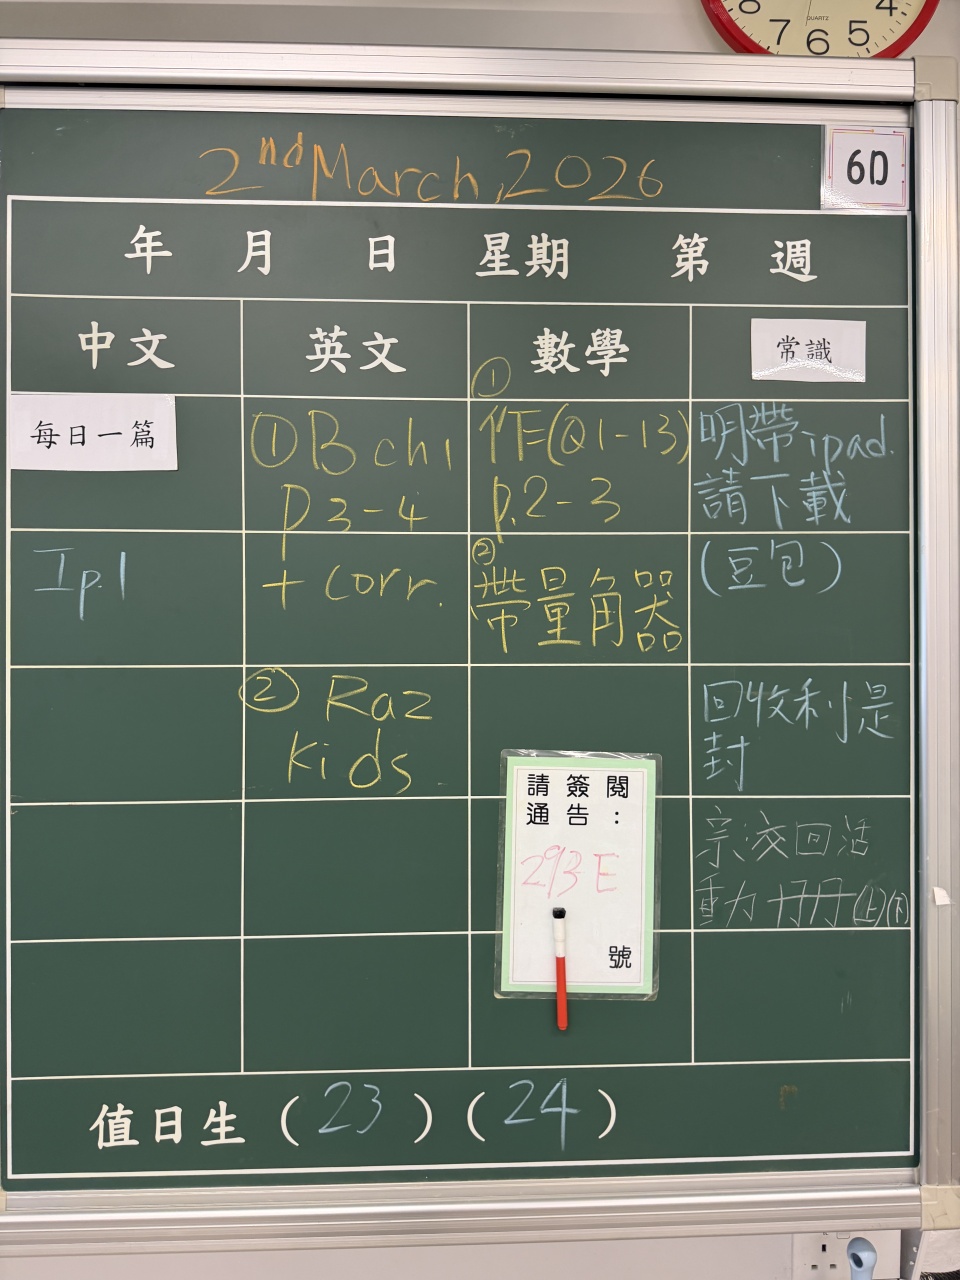 2nd March, 2026
6D
年 月 日 星期 第 週
中文 英文 數學 常識
每日一篇
Ip.1
① B ch1
p3-4
+ corr.
② Raz
kids
①
作=(Q1-13)
p.2-3
②
帶量角器
明帶ipad.
請下載
(豆包)
回收利是
封
回活
動 (上)(下)
請簽閱
通告:
293E
號
值日生 (23) (24)
8 7 6 5 4
QUARTZ